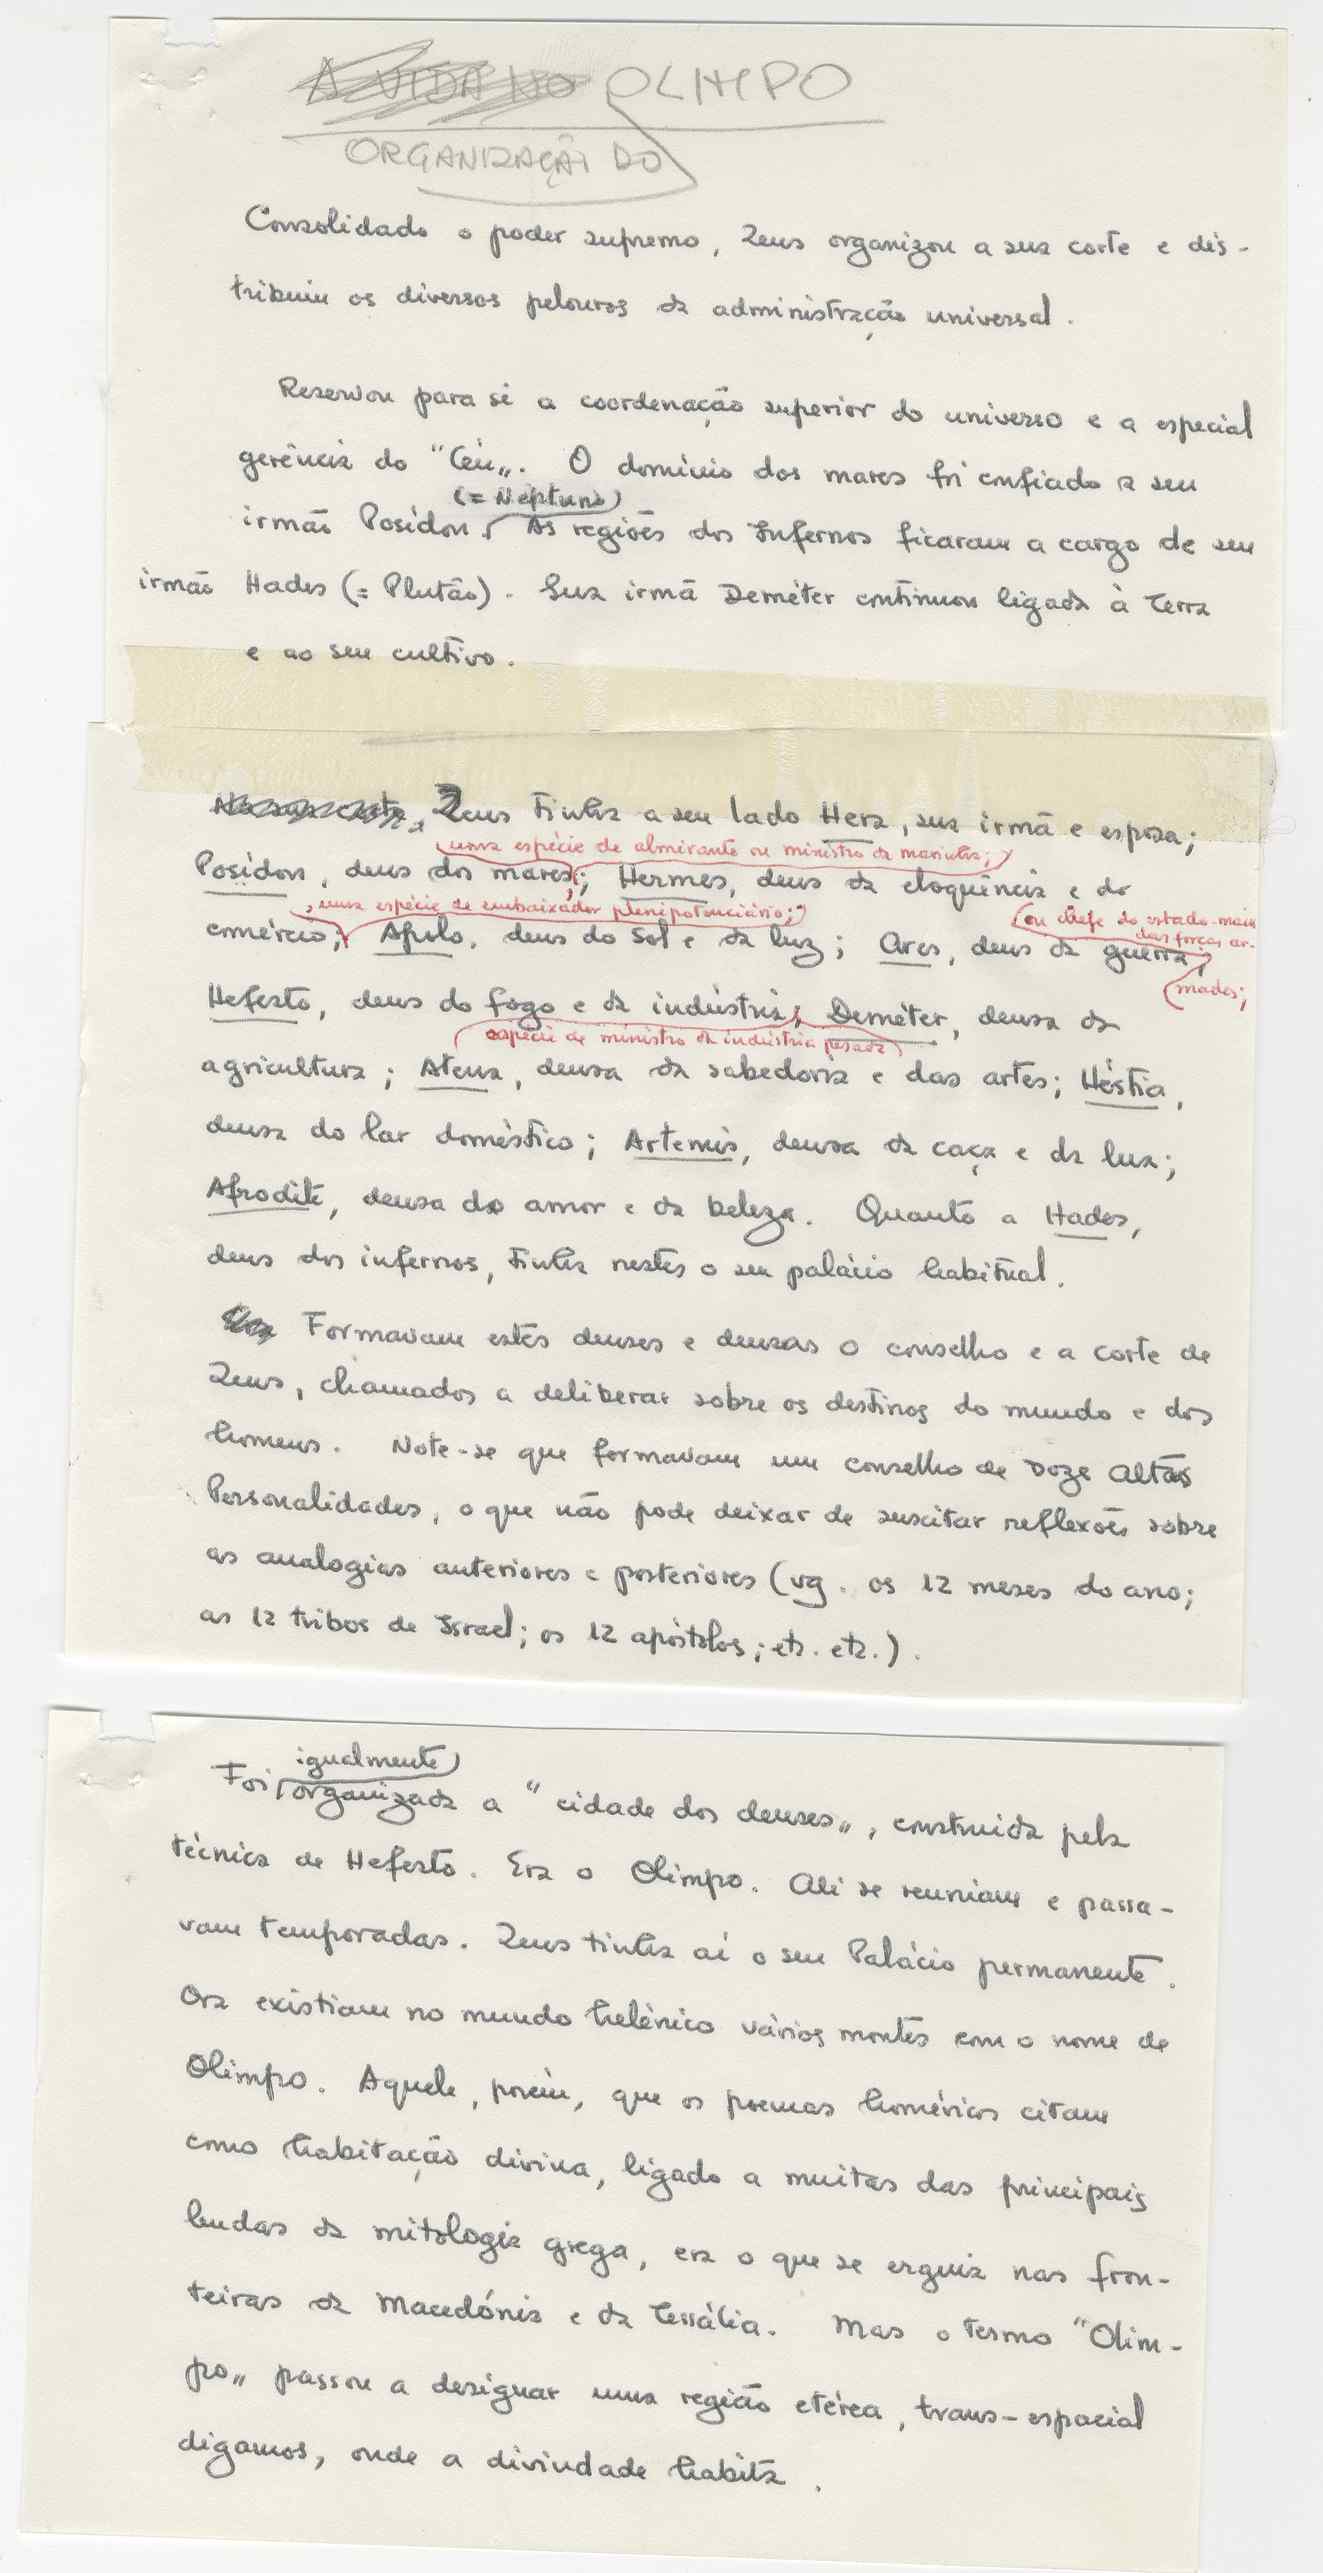 A VIDA NO OLIMPO
ORGANIZAÇÃO DO
Consolidado o poder supremo, Zeus organizou a sua corte e dis-
tribuiu os diversos pelouros da administração universal.
Reservou para si a coordenação superior do universo e a especial
gerência do "Céu". O domínio dos mares foi confiado a seu
(= Neptuno)
irmão Posídon. As regiões dos Infernos ficaram a cargo de seu
irmão Hades (= Plutão). Sua irmã Deméter continuou ligada à Terra
e ao seu cultivo.
Zeus tinha a seu lado Hera, sua irmã e esposa;
uma espécie de almirante ou ministro da marinha;
Posídon, deus dos mares; Hermes, deus da eloquência e do
, uma espécie de embaixador plenipotenciário;
(ou chefe do estado-maior
das forças ar-
comércio; Apolo, deus do Sol e da luz; Ares, deus da guerra,
madas;
Hefesto, deus do fogo e da indústria; Deméter, deusa da
espécie de ministro da indústria pesada
agricultura; Atena, deusa da sabedoria e das artes; Héstia,
deusa do lar doméstico; Artemis, deusa da caça e da lua;
Afrodite, deusa do amor e da beleza. Quanto a Hades,
deus dos infernos, tinha nestes o seu palácio habitual.
Formavam estes deuses e deusas o conselho e a corte de
Zeus, chamados a deliberar sobre os destinos do mundo e dos
homens. Note-se que formavam um conselho de Doze Altas
Personalidades, o que não pode deixar de suscitar reflexões sobre
as analogias anteriores e posteriores (vg. os 12 meses do ano;
as 12 tribos de Israel; os 12 apóstolos; etc. etc.).
igualmente
Foi organizada a "cidade dos deuses", construída pela
técnica de Hefesto. Era o Olimpo. Ali se reuniam e passa-
vam temporadas. Zeus tinha aí o seu Palácio permanente.
Ora existiam no mundo helénico vários montes com o nome de
Olimpo. Aquele, porém, que os poemas homéricos citam
como habitação divina, ligado a muitas das principais
lendas da mitologia grega, era o que se erguia nas fron-
teiras da Macedónia e da Tessália. Mas o termo "Olim-
po" passou a designar uma região etérea, trans-espacial
digamos, onde a divindade habita.